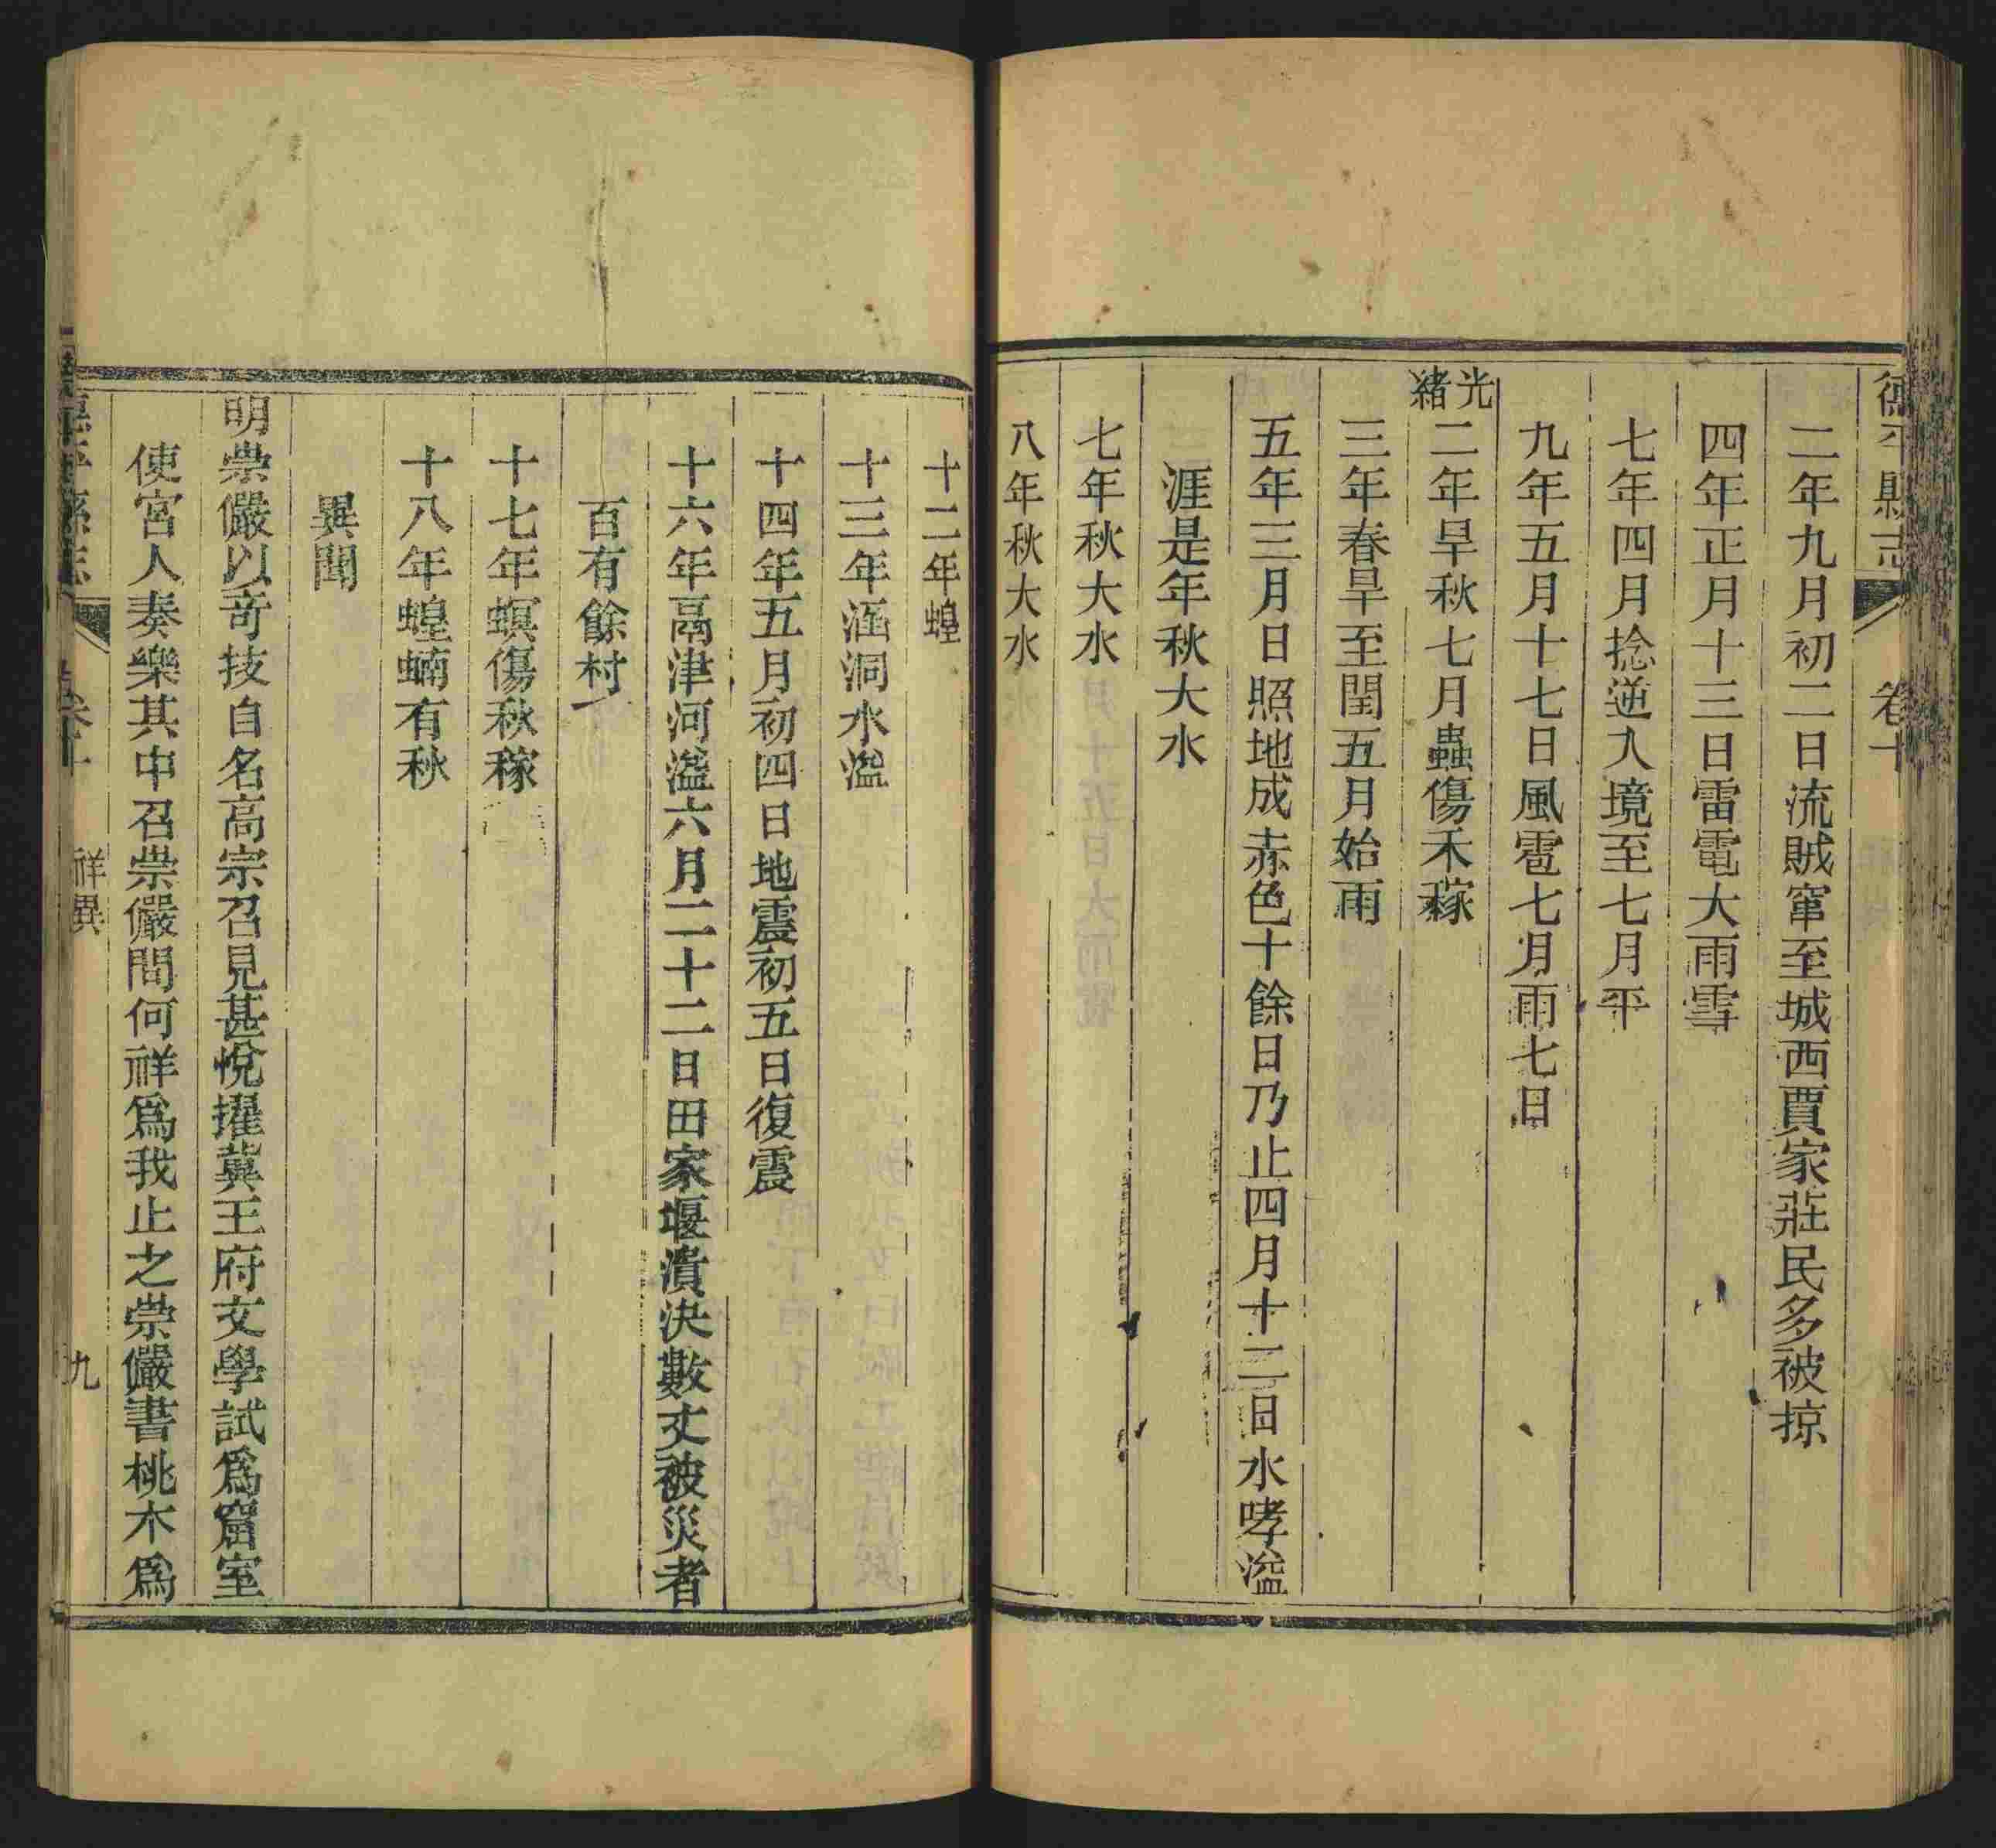 德平縣志 卷十
二年九月初二日流賊竄至城西賈家莊民多被掠
四年正月十三日雷電大雨雪
七年四月捻逆入境至七月平
九年五月十七日風雹七月雨七日
光緒二年旱秋七月蟲傷禾稼
三年春旱至閏五月始雨
五年三月日照地成赤色十餘日乃止四月十二日水哮溢
涯是年秋大水
七年秋大水
八年秋大水
十二年蝗
十三年涵洞水溢
十四年五月初四日地震初五日復震
十六年鬲津河溢六月二十二日田家堰潰決數丈被災者
百有餘村
十七年螟傷秋稼
十八年蝗蝻有秋
異聞
明崇儼以奇技自名高宗召見甚悅擢冀王府文學試爲窟室
使宮人奏樂其中召崇儼問何祥爲我止之崇儼書桃木爲
德平縣志 卷十 祥異 九